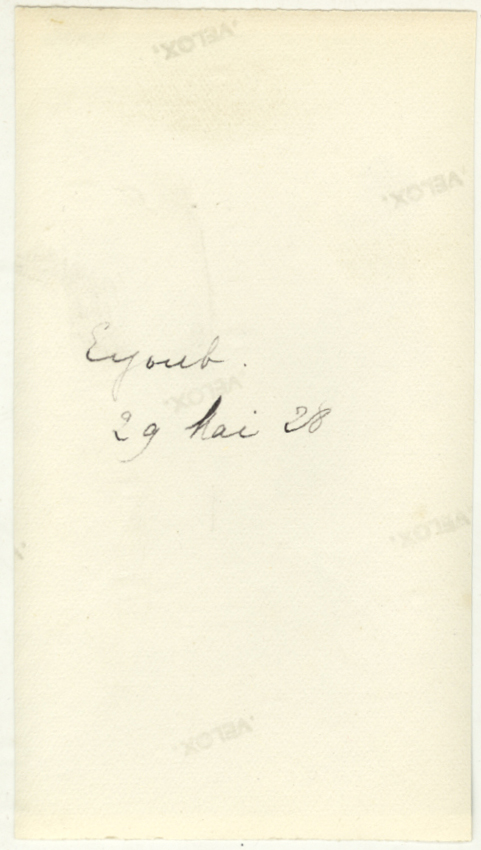 'VELOX'
'VELOX'
Eyoub.
'VELOX'
29 Mai 28
'VELOX'
'VELOX'